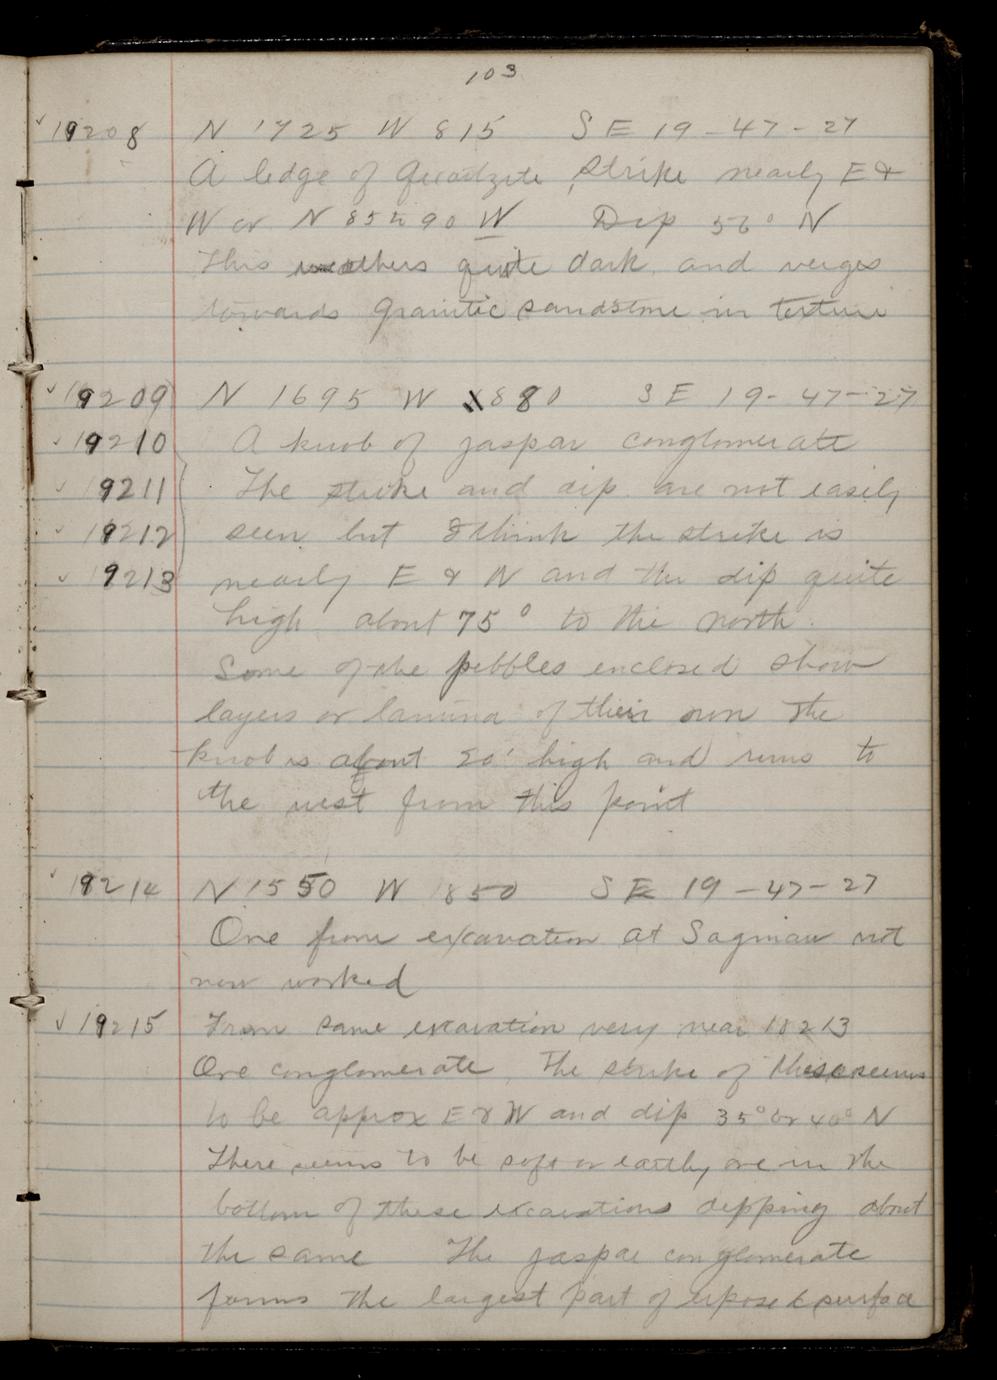 103
✓19208 N 1725 W 815 SE 19-47-27
A ledge of Quartzite, strike nearly E &
W or N 85 to 90 W Dip 56° N
This weathers quite dark and verges
towards granitic sandstone in texture
✓19209 N 1695 W 880 SE 19-47-27
✓19210 A knob of jaspar conglomerate
✓19211 The strike and dip are not easily
✓19212 seen but I think the strike is
✓19213 nearly E & W and the dip quite
high about 75° to the north.
Some of the pebbles enclosed show
layers or lamina of their own The
knob is about 20' high and runs to
the west from this point
✓19214 N 1550 W 1850 SE 19-47-27
Ore from excavation at Saginaw not
now worked
✓19215 From same excavation very near 18213
Ore conglomerate, The strike of these seems
to be approx E & W and dip 35° or 40° N
There seems to be soft or earthy ore in the
bottom of these excavations dipping about
the same The jaspar conglomerate
forms the largest part of exposed surface